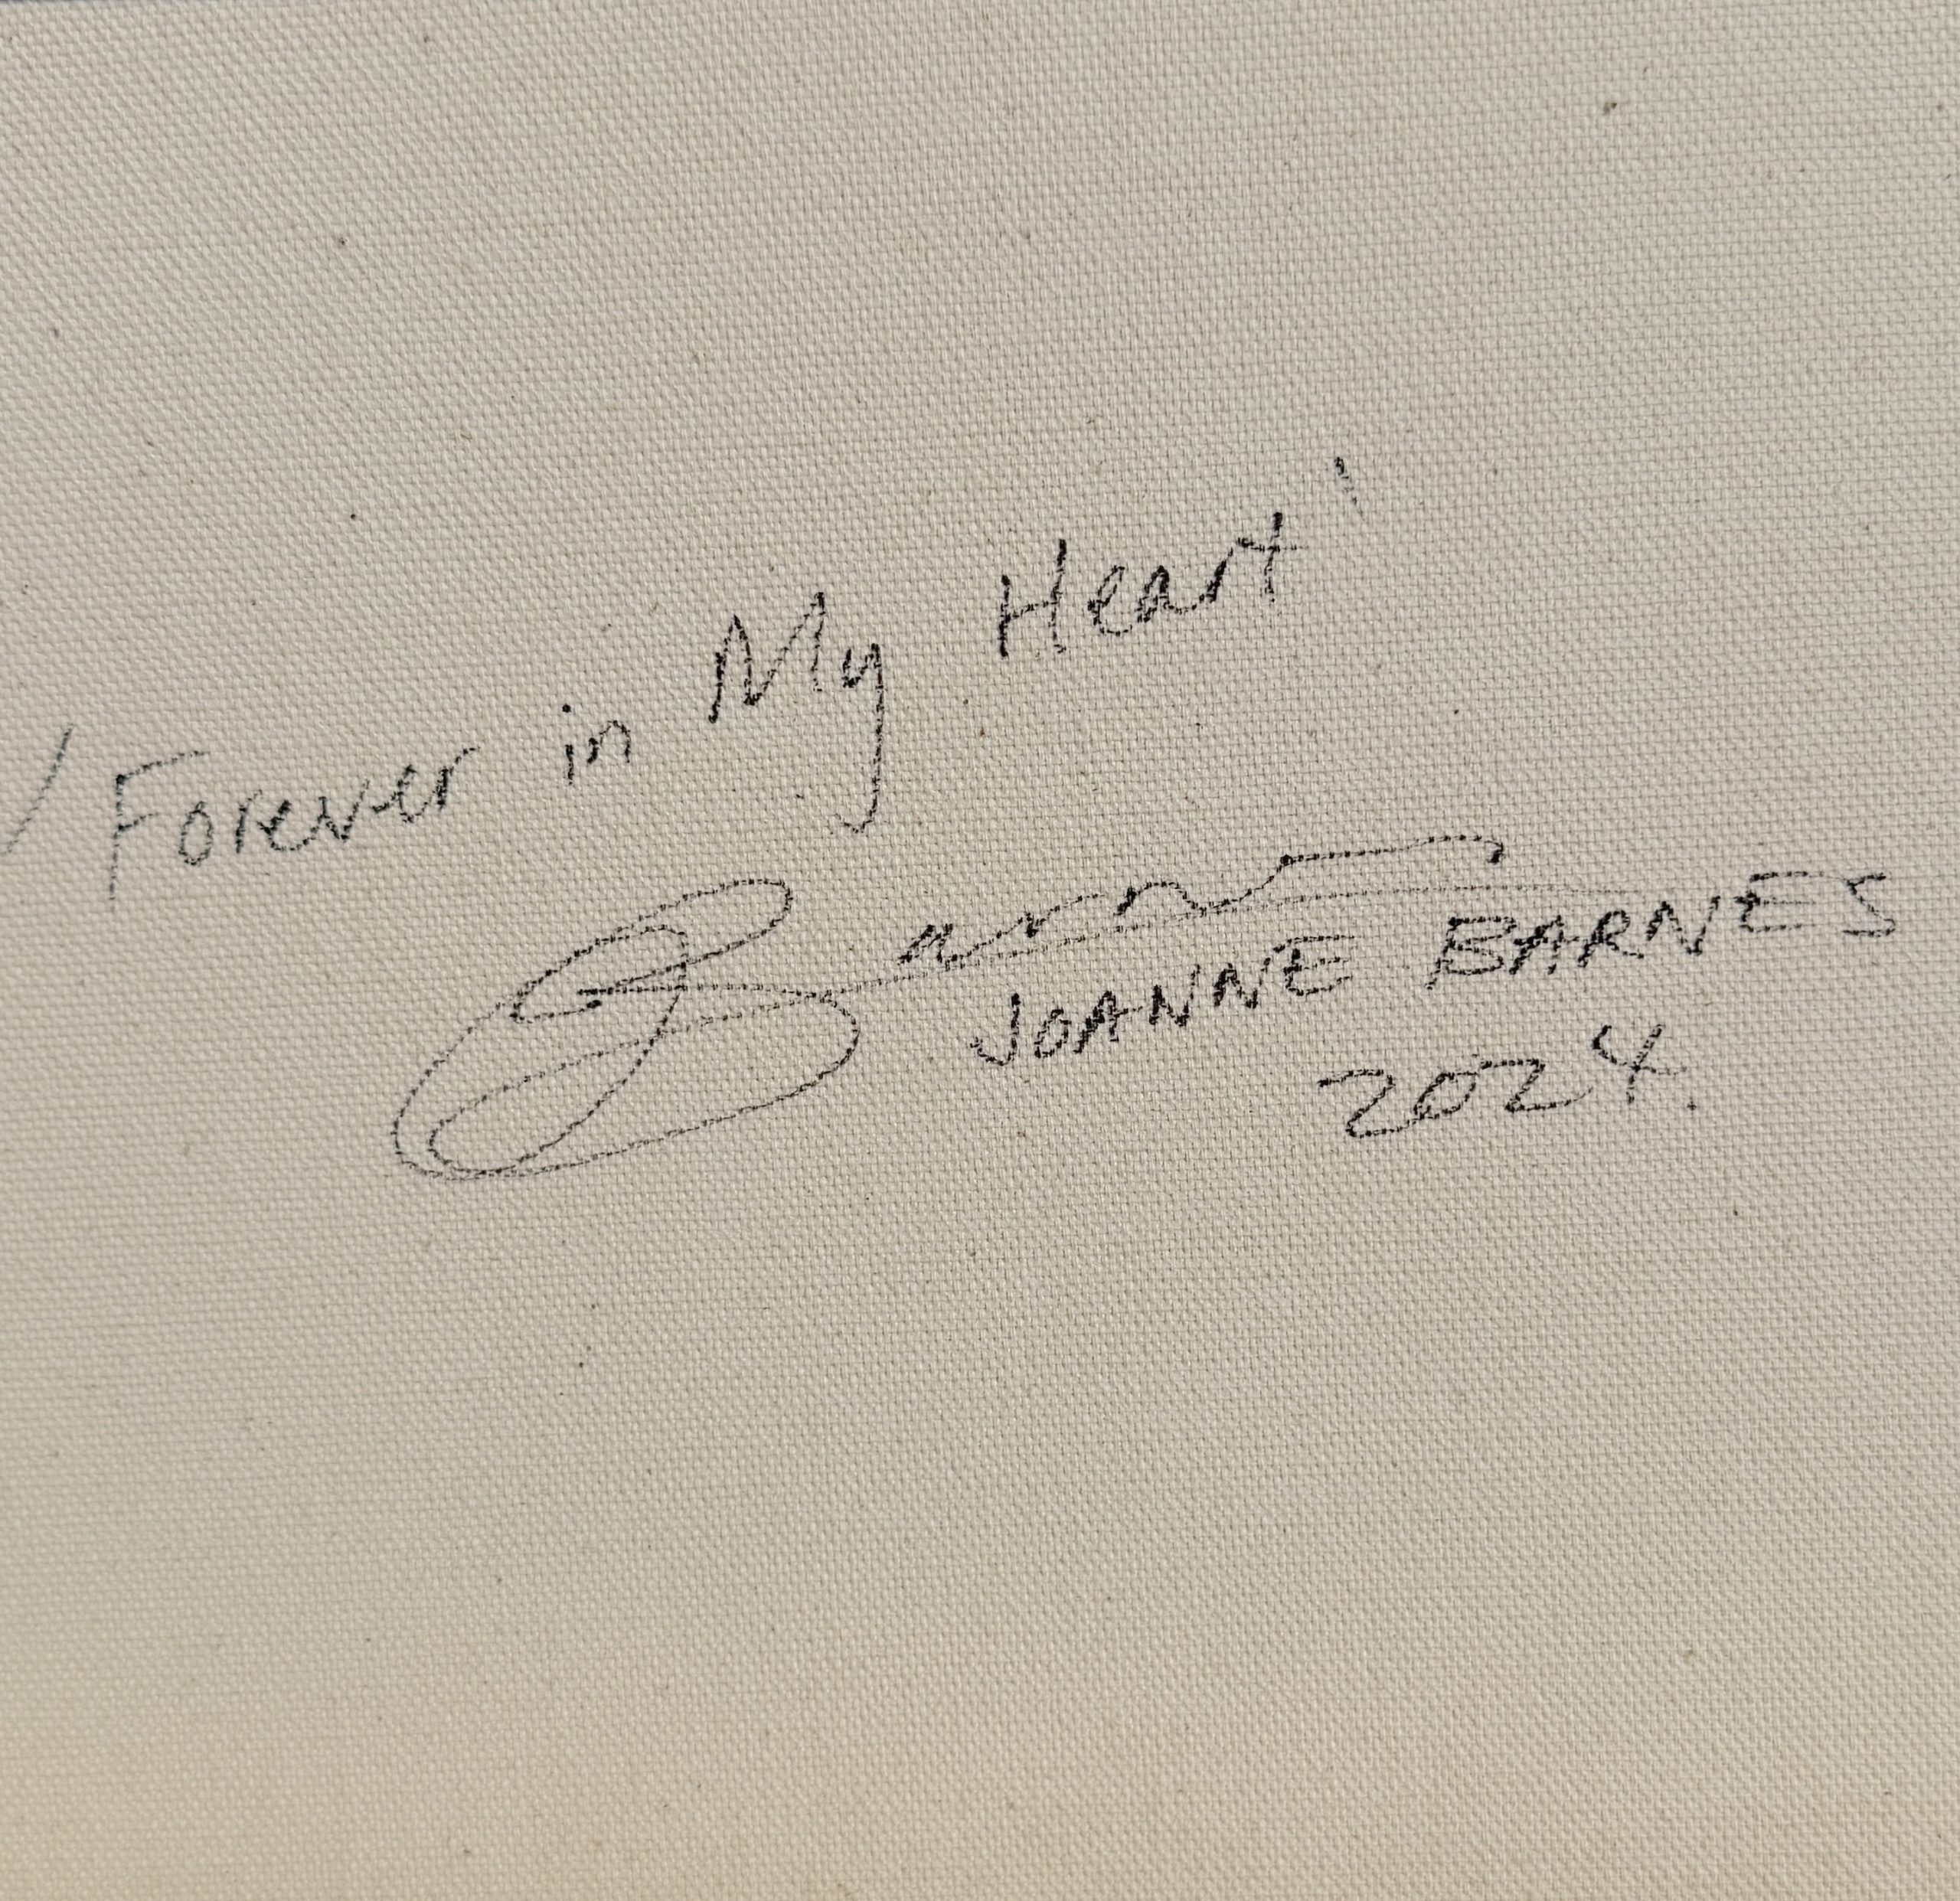 'Forever in My Heart'
JOANNE BARNES
2024.